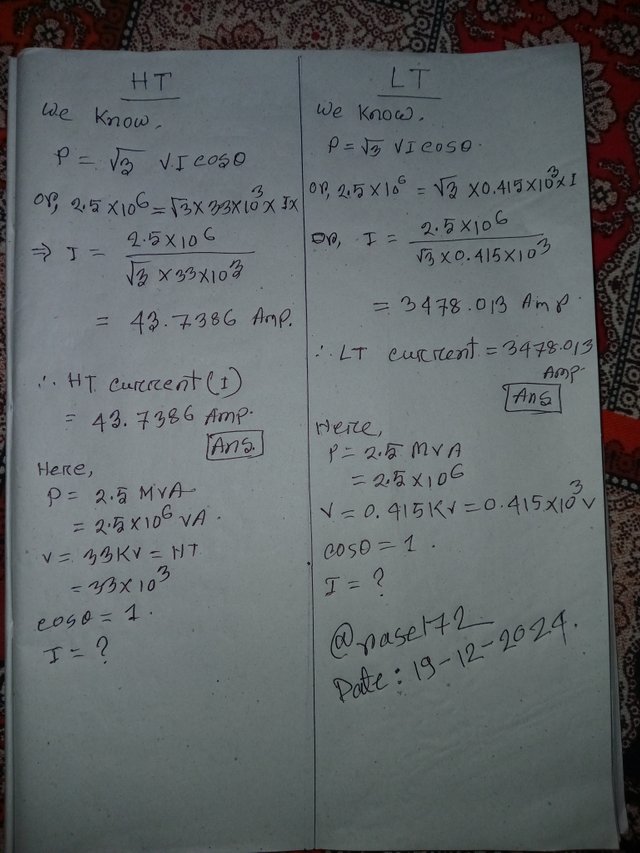 HT
We Know,
P = √3 V.I cosθ
or, 2.5×10⁶ = √3×33×10³× I×
⇒ I = 2.5×10⁶
√3 × 33×10³
= 43.7386 Amp.
∴ HT current (I)
= 43.7386 Amp.
Ans.
Here,
P = 2.5 MVA
= 2.5×10⁶ VA.
V = 33KV = HT
= 33×10³
cosθ = 1.
I = ?
LT
We Know,
P = √3 VI cosθ.
or, 2.5×10⁶ = √3 ×0.415×10³×I
or, I = 2.5×10⁶
√3 × 0.415×10³
= 3478.013 Amp.
∴ LT current = 3478.013
Amp.
Ans
Here,
P = 2.5 MVA
= 2.5×10⁶
V = 0.415KV = 0.415×10³ V
cosθ = 1.
I = ?
@rase172
Date: 19-12-2024.